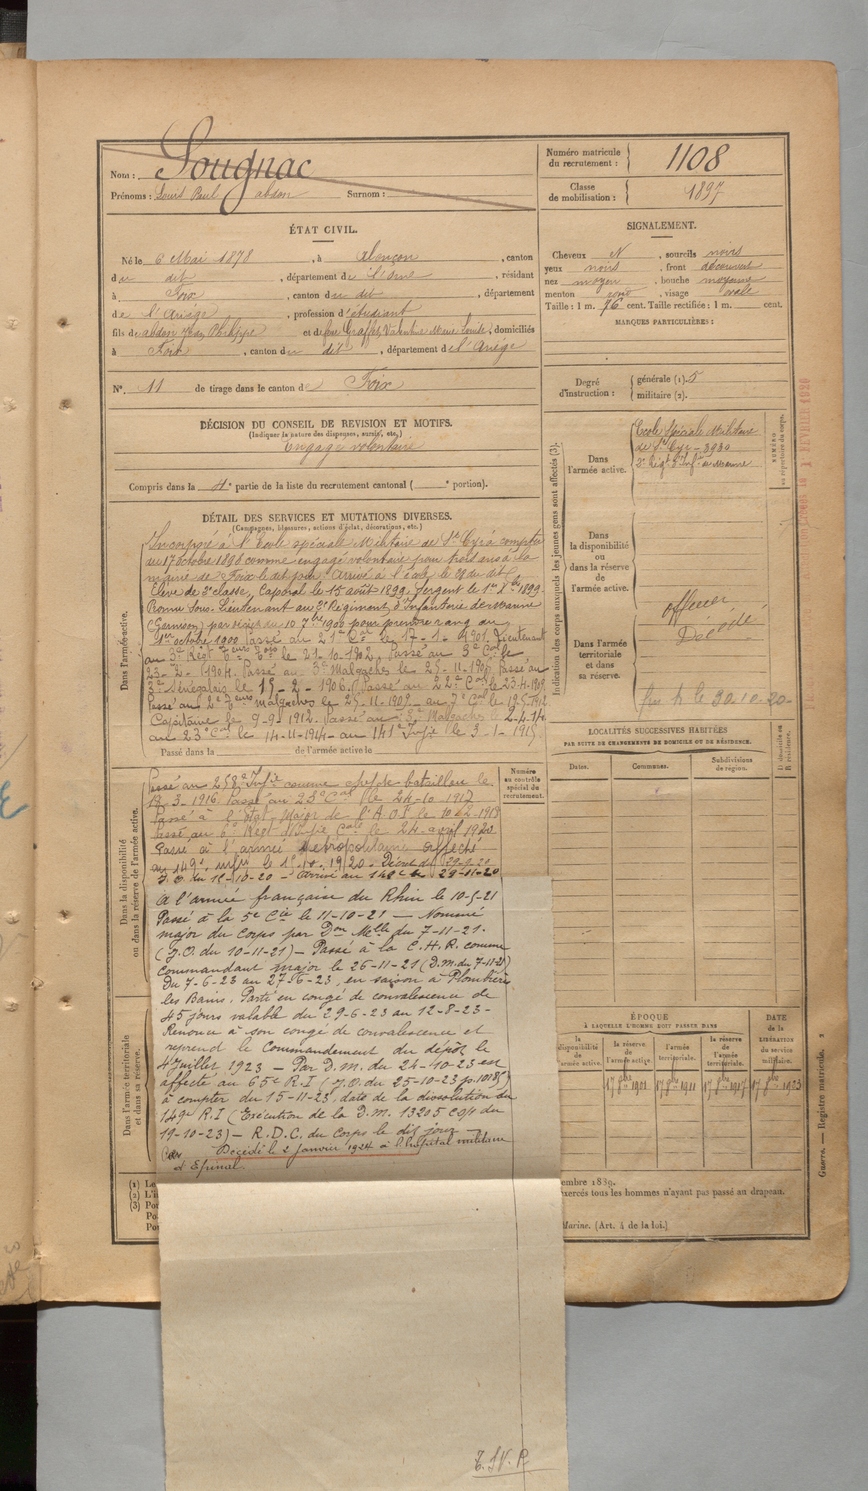 Nom : Sougnac
Prénoms : Louis Paul abdon Surnom :
Numéro matricule du recrutement : 1108
Classe de mobilisation : 1897
ÉTAT CIVIL.
Né le 6 Mai 1878, à Alençon, canton
du dit, département de l'Orne, résidant
à Foix, canton du dit, département
de l'Ariège, profession d'étudiant
fils de abdon Jean Philippe et de domiciliés
à Foix, canton du dit, département de l'Ariège
N°. 11 de tirage dans le canton de Foix
SIGNALEMENT.
Cheveux N, sourcils noirs
yeux noirs, front découvert
nez moyen, bouche moyenne
menton rond, visage ovale
Taille : 1 m. 76 cent. Taille rectifiée : 1 m. cent.
MARQUES PARTICULIÈRES :
Degré d'instruction : générale (1). 5
militaire (2).
DÉCISION DU CONSEIL DE REVISION ET MOTIFS.
(Indiquer la nature des dispenses, sursis, etc.)
Engagé volontaire
Compris dans la 4e partie de la liste du recrutement cantonal ( portion).
DÉTAIL DES SERVICES ET MUTATIONS DIVERSES.
(Campagnes, blessures, actions d'éclat, décorations, etc.)
Dans l'armée active.
Incorporé à l'Ecole spéciale Militaire de St Cyr à compter
du 17 octobre 1898 comme engagé volontaire pour trois ans à la
mairie de Foix le dit jour. Arrivé à l'école le 29 du dit
Elève de 2e classe, Caporal le 15 août 1899. Sergent le 1er 1899.
Promu Sous-Lieutenant au 3e Régiment d'Infanterie de marine
1er octobre 1900 Passé au 21e Cal le 17-1-1901. Lieutenant
au 3e Régt le 21-10-1902, Passé au 3e Cal le
23-2-1904. Passé au 3e Malgaches le 25-11-1905 Passé au
Sénégalais le 15-2-1906. Passé au 22e Cal le 23-4-1909
Passé au 2e malgaches le 25-11-1909 au 7e Cal le 19-5-1912
Capitaine le 9-9-1912. Passé au Malgaches le 2-4-14
au 23e Cal le 14-11-1914 au 141e Infie le 3-1-1915
Passé dans la de l'armée active le
Dans la disponibilité ou dans la réserve de l'armée active.
Passé au 258e Infie comme chef de bataillon le
19-3-1916 Passé au 23e Cal le 24-10-1917
Passé à l'Etat-Major de l'A.O.F. le 10-12-1918
Passé au 6e Régt d'Infie Cale le 24 avril 1920
Passé à l'armée Métropolitaine affecté
au 149e infie le 1er 10 1920. Décret du 29-9-20
J.O. du 12-10-20 - Arrivé au 149e le 29-11-20
A l'armée française du Rhin le 10-5-21
Passé à la 5e Cie le 11-10-21 — Nommé
major du Corps par Don Melle du 7-11-21.
(J.O. du 10-11-21) — Passé à la C.H.R. comme
Commandant major le 26-11-21 (D.M. du 7-11-21)
Du 7-6-23 au 27-6-23, en saison à Plombières
les Bains. Parti en congé de convalescence de
45 jours valable du 29-6-23 au 12-8-23 -
Renonce à son congé de convalescence et
reprend le Commandement du dépôt le
4 Juillet 1923 — Par D.M. du 24-10-23 est
affecté au 65e R.I (J.O. du 25-10-23 p. 10185)
à compter du 15-11-23, date de la dissolution du
149e R.I (Exécution de la D.M. 13205 du
19-10-23) — R.D.C. du Corps le dit jour
Décédé le 2 janvier 1924 à l'hôpital militaire
d'Epinal.
T.S.V.P.
Dans l'armée territoriale et dans sa réserve.
Numéro au contrôle spécial du recrutement.
Indication des corps auxquels les jeunes gens sont affectés (3).
Dans l'armée active.
Ecole Spéciale Militaire
de St Cyr - 3930
3e Régt d'Infie de Marine
Dans la disponibilité ou dans la réserve de l'armée active.
Dans l'armée territoriale et dans sa réserve.
officier
Décédé
le 30-10-20-
NUMÉRO au répertoire du corps.
LOCALITÉS SUCCESSIVES HABITÉES
PAR SUITE DE CHANGEMENTS DE DOMICILE OU DE RÉSIDENCE.
Dates. Communes. Subdivisions de région. D domicile ou R résidence.
ÉPOQUE
À LAQUELLE L'HOMME DOIT PASSER DANS
la disponibilité de l'armée active. la réserve de l'armée active. l'armée territoriale. la réserve de l'armée territoriale.
DATE de la LIBÉRATION du service militaire.
17 8bre 1901 17 8bre 1911 17 8bre 1917 17 8bre 1923
Guerre. — Registre matricule. 2
(1)
(2)
(3)
embre 1889.
exercés tous les hommes n'ayant pas passé au drapeau.
Marine. (Art. 4 de la loi.)